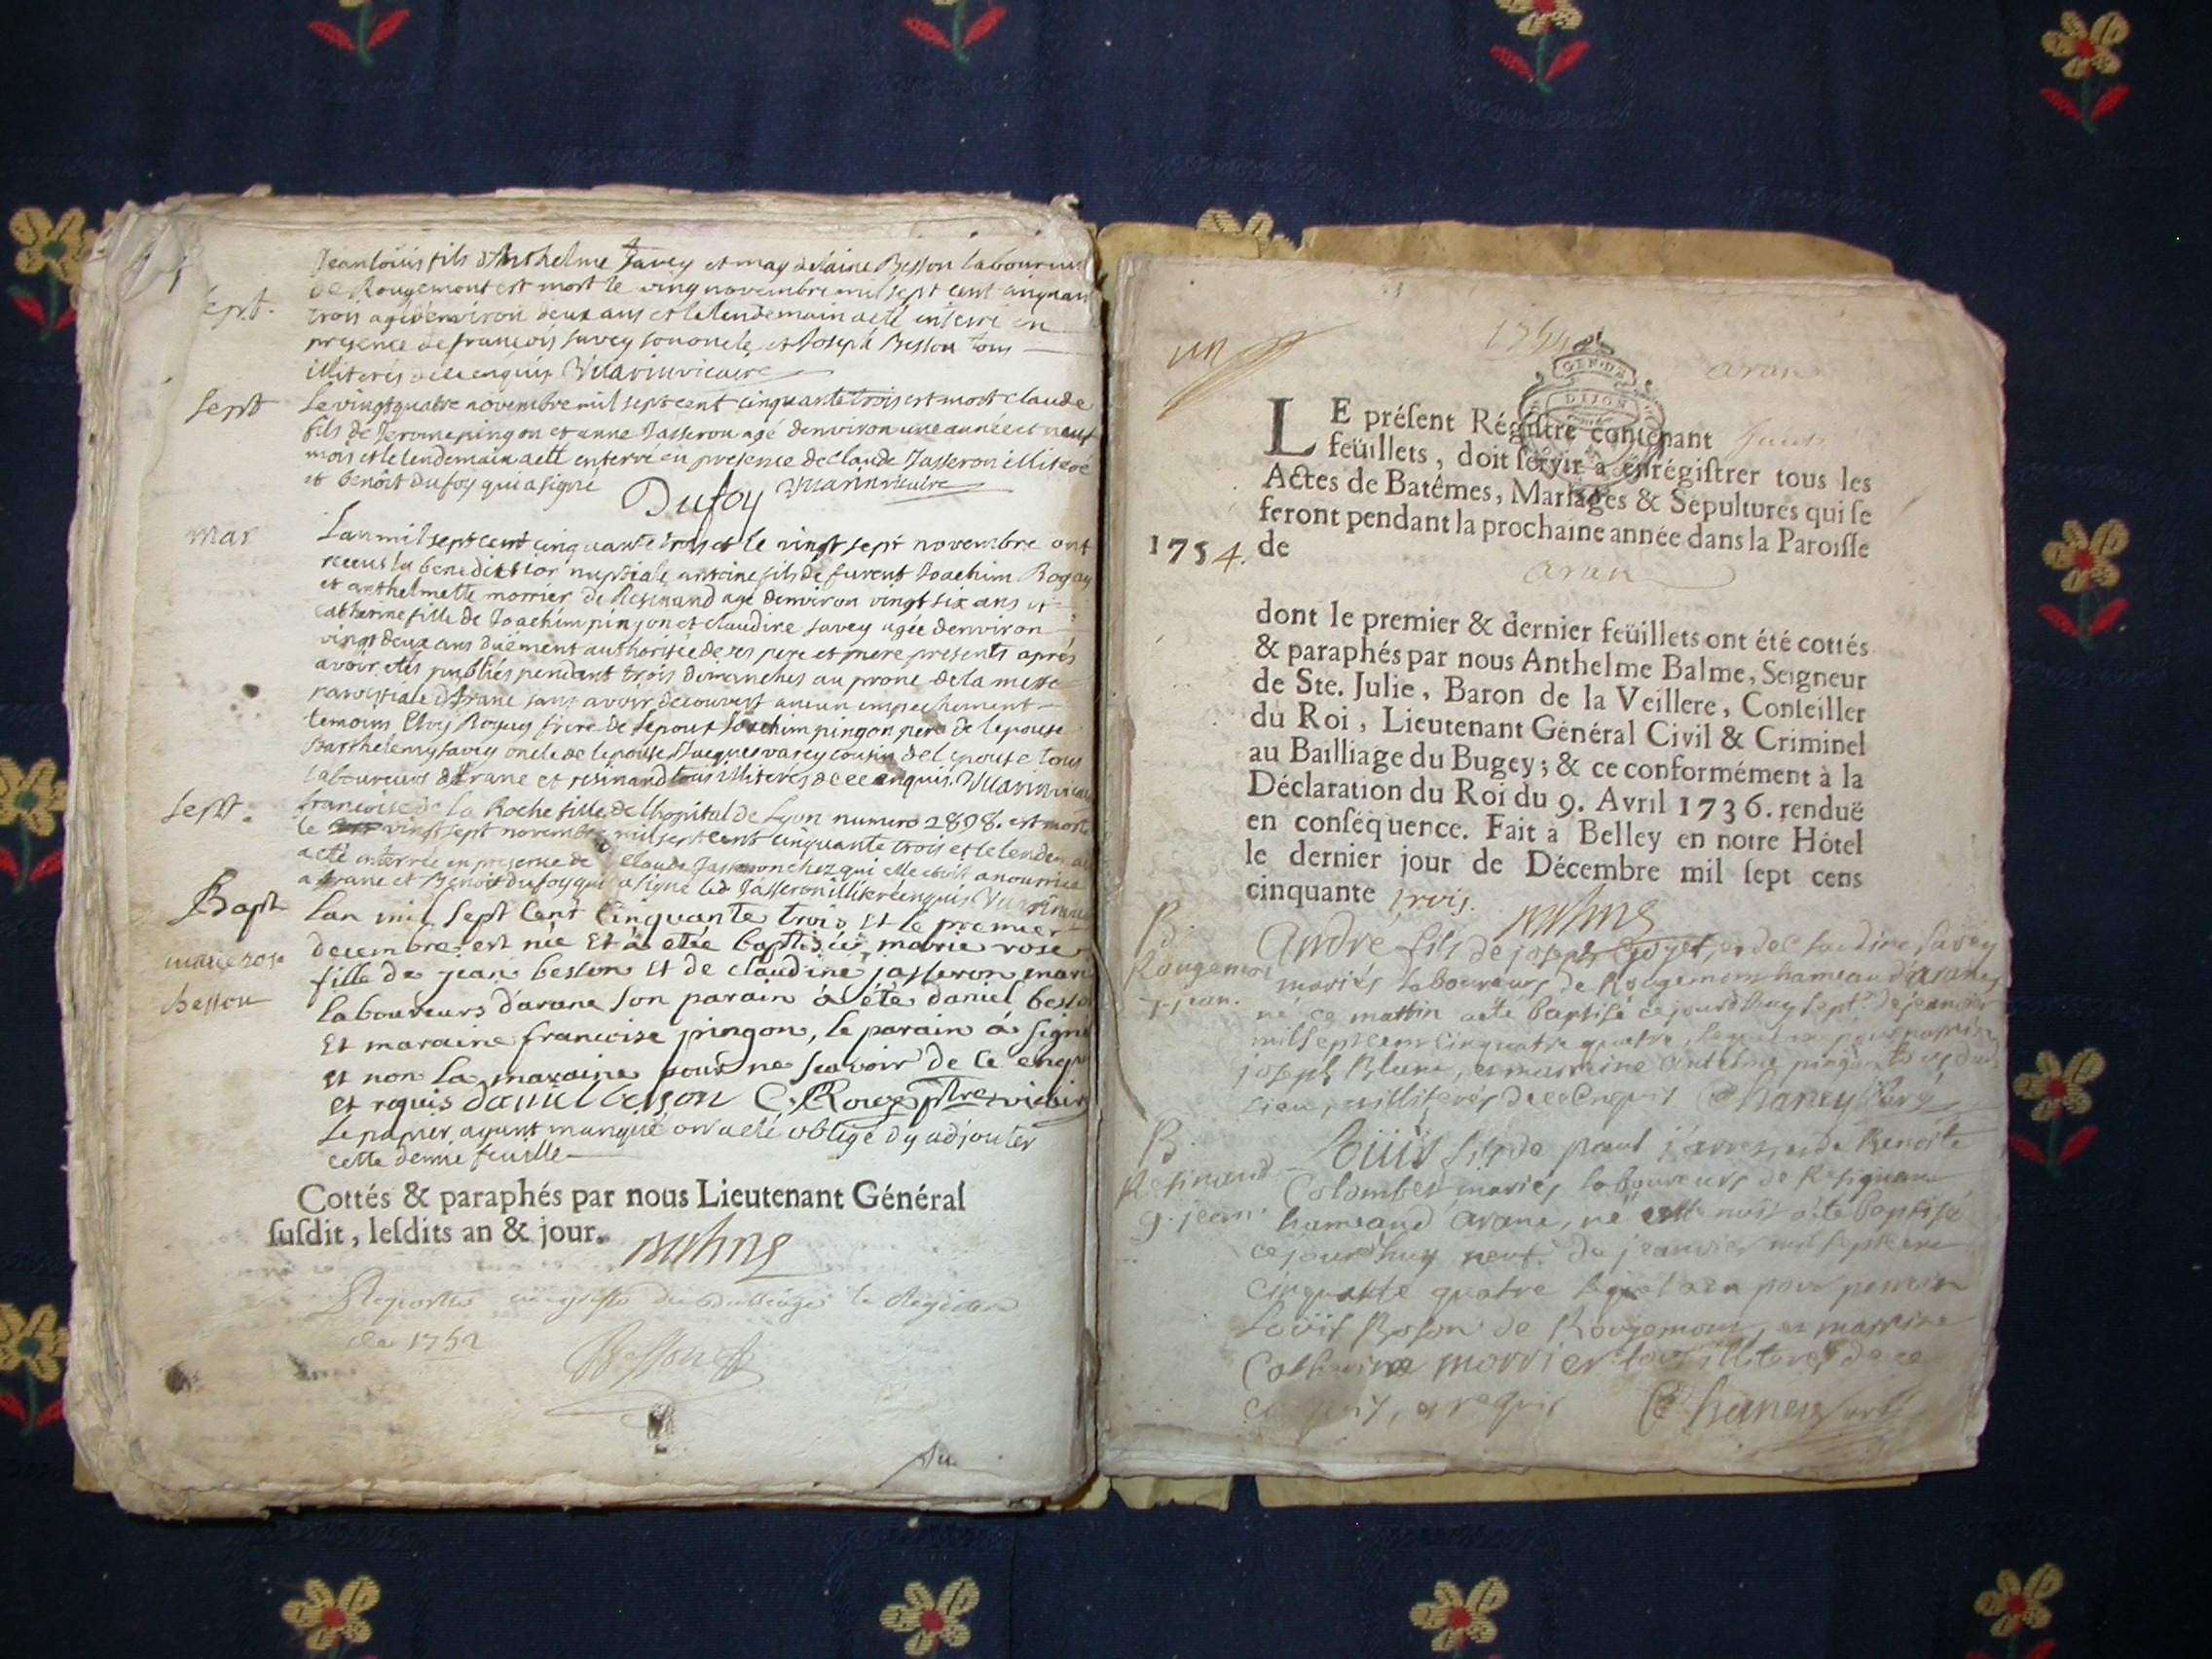 Jean loüis fils d'Anthelme Savey et magdelaine Besson laboureurs
de Rougemont est mort le ving novembre mil sept cent cinquan
sept. trois agé d'environ deux ans et le lendemain a eté enterré en
presence de françois Savey son oncle et Joseph Besson tous
illiterés de ce enquis vicaire
sept Le vingt quatre novembre mil sept cent cinquante trois est mort claude
fils de Jerome pingon et anne Jasseron agé denviron une année et neuf
mois et le lendemain a eté enterré en presence de Claude Jasseron illiteré
et benoit Dufoy qui a signé Dufoy vicaire
mar L'an mil sept cent cinquante trois et le vingt sept novembre ont
receus la benediction nuptiale antoine fils de furent Joachim
et anthelmette morrier de Resinand agé denviron vingt six ans et
catherine fille de Joachim pingon et claudine savey agée denviron
vingt deux ans düement authorisée de ses pere et mere presents aprés
avoir etés publiés pendant trois dimanches au prone de la messe
paroissiale d'Arane sans avoir decouvert aucun empechement
temoins frere de lepoux Joachim pingon pere de lepouse
Barthelemy savey oncle de lepouse Jacques varey cousin de lepouse tous
laboureurs d'Arane et resinand tous illiterés de ce enquis.
sept. francoise de la Roche fille de l'hopital de Lyon numero 2898. est morte
le vingt sept novembre mil sept cent cinquante trois et le lendemain
a eté enterrée en presence de Claude Jasseron chez qui elle etoit a nourrice
a Arane et Benoit dufoy qui a signé led Jasseron illiteré enquis
Bapt Lan mil sept Cent Cinquante trois Et le premier
decembre est née Et a etée baptisée marie rose
marie rose fille de jean besson Et de claudine jasseron mari
besson laboureurs darane son parain a été daniel besson
Et maraine francoise pingon, le parain a signé
et non la maraine pour ne scavoir de Ce enquis
et requis daniel besson C. Roux ptre vicaire
Le papier ayant manqué on a eté obligé d'y adjouter
cette demie feuille
Cottés & paraphés par nous Lieutenant Général
susdit, lesdits an & jour.
de 1752
un
1754
aran
GEN. DE
DIJON
LE présent Régistre contenant huit
feüillets, doit servir à enrégistrer tous les
Actes de Batêmes, Mariages & Sépultures qui se
feront pendant la prochaine année dans la Paroisse
1754. de
aran
dont le premier & dernier feüillets ont été cottés
& paraphés par nous Anthelme Balme, Seigneur
de Ste. Julie, Baron de la Veillere, Conseiller
du Roi, Lieutenant Général Civil & Criminel
au Bailliage du Bugey; & ce conformément à la
Déclaration du Roi du 9. Avril 1736. renduë
en conséquence. Fait à Belley en notre Hôtel
le dernier jour de Décembre mil sept cens
cinquante trois.
B. André fils de joseph et de Claudine Savey
Rougemont mariés laboureurs de Rougemont hameau d'arane
7 jean. né ce mattin a eté baptisé ce jourdhuy sept de jeanvier
mil sept cent cinquante quatre, lequel a eu pour parrin
joseph Blanc, et marrine antelme pingon
lieu, illiterés de ce enquis Chaney Curé
B. Loüis fils de paul et de Benoite
Resinand Colomber mariés laboureurs de Resignand
9. jean. hameau d'arane, né cette nuit a eté baptisé
ce jourdhuy neuf de jeanvier mil sept cent
cinquante quatre lequel a eu pour parrin
Loüis de Rougemont, et marrine
Catherine morrier tous illiterés de ce
enquis, et requis Chaney Curé